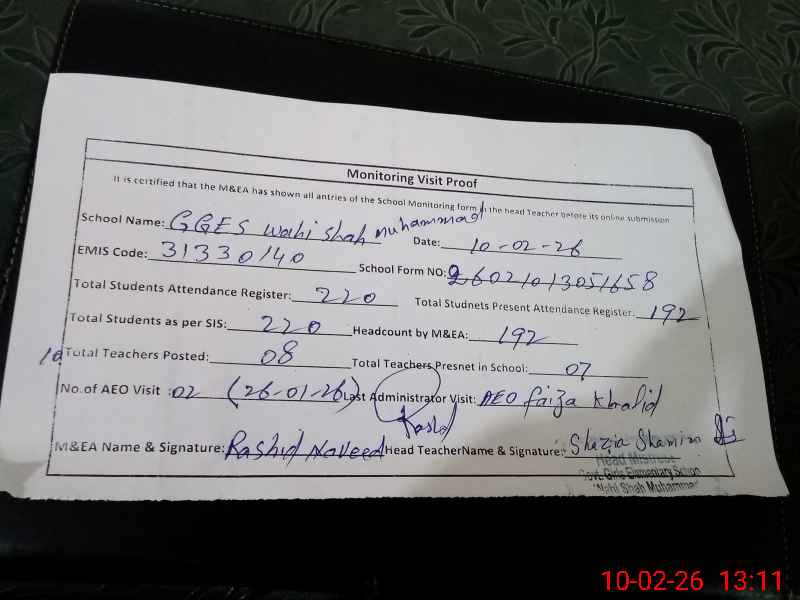 Monitoring Visit Proof
It is certified that the M&EA has shown all antries of the School Monitoring form in the head Teacher before its online submission
School Name: GGES wahi shah muhammad Date: 10-02-26
EMIS Code: 31330140 School Form NO: 26021013051658
Total Students Attendance Register: 220 Total Studnets Present Attendance Register: 192
Total Students as per SIS: 220 Headcount by M&EA: 192
Total Teachers Posted: 08 Total Teachers Presnet in School: 07
No.of AEO Visit : 02 (26-01-26) Last Administrator Visit: AEO faiza Khalid
M&EA Name & Signature: Rashid Naveed Head TeacherName & Signature: Shazia Shamim
Head Mistress
Govt. Girls Elementary School
Wahi Shah Muhammad
10-02-26 13:11